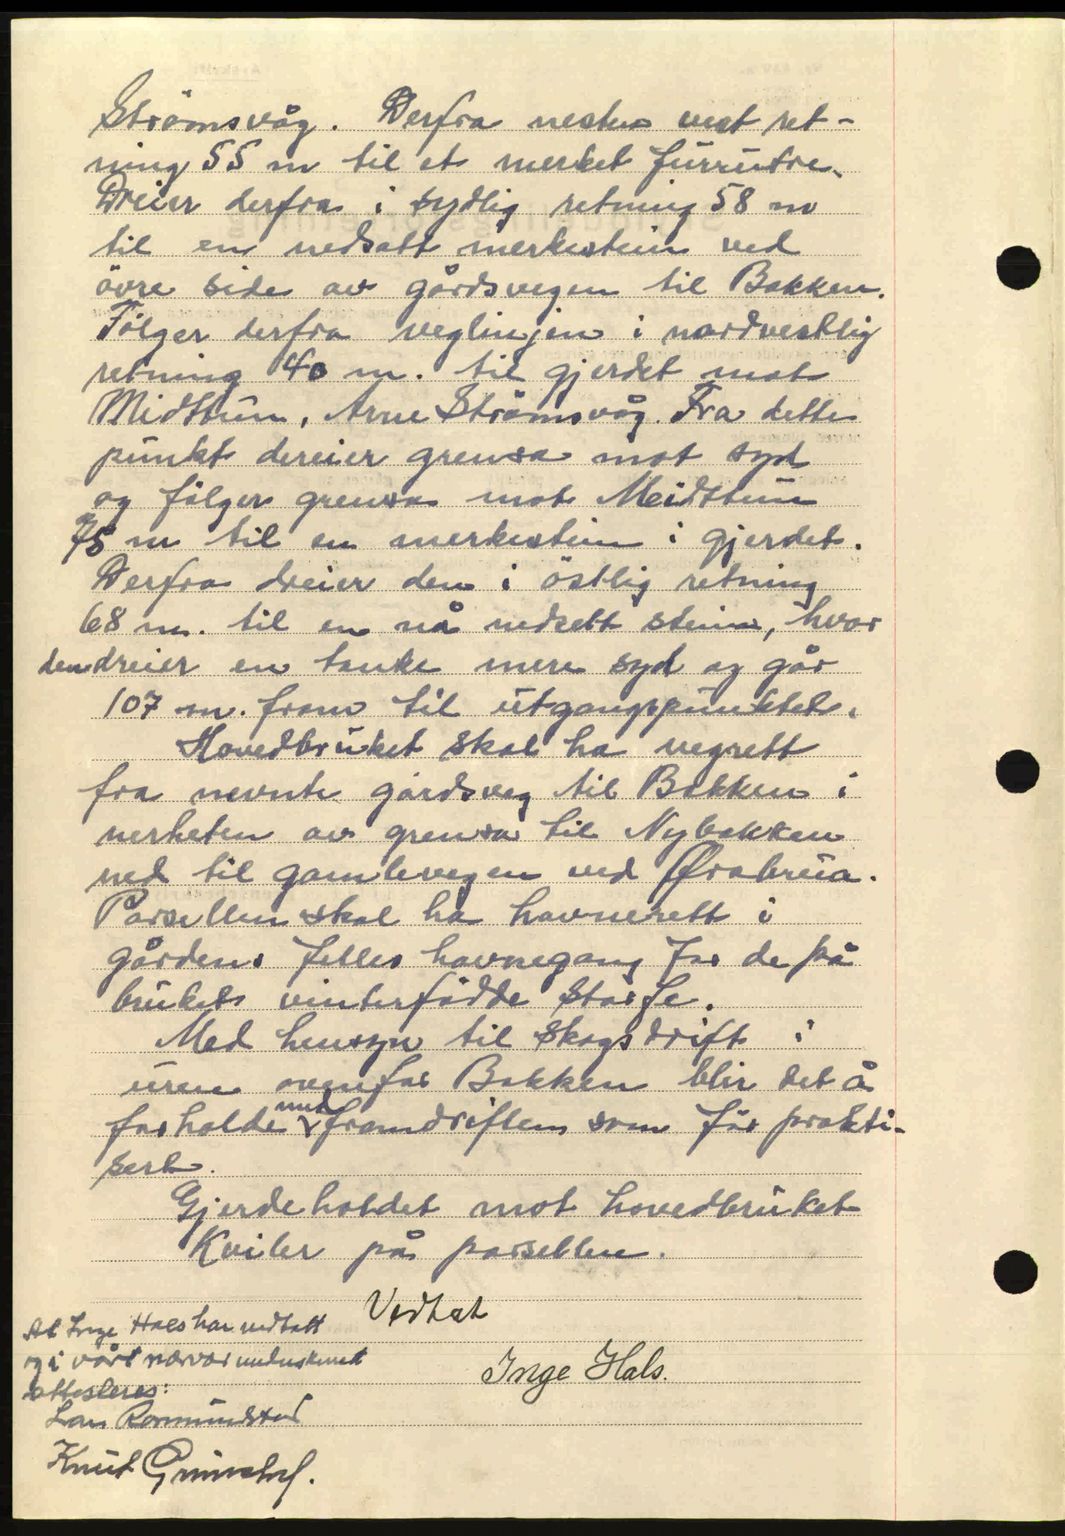 Strömsvåg. Derfra nesten vest ret-
ning 55 m til et merket furrutre.
Dreier derfra i sydlig retning 58 m
til en nedsatt merkestein ved
övre side av gårdsvegen til Bakken.
Fölger derfra veglinjen i nordvestlig
retning 40 m. til gjerdet mot
Midttun, Arne Strömsvåg. Fra dette
punkt dereier grensa mot syd
og fölger grensa mot Meidttun
75 m til en merkestein i gjerdet.
Derfra dreier den i östlig retning
68 m. til en nå nedsett stein, hvor
den dreier en tanke mere syd og går
107 m. fram til utgangspunktet.
Hovedbruket skal ha vegrett
fra nevnte gardsveg til Bakken i
nerheten av grensa til Nybakken
ned til gamlevegen ved Ørabrua.
Parsellen skal ha havnerett i
gårdens felles havnegang for de på
brukets vinterfödde storfe.
Med hensyn til skogsdrift i
uren ovenfor Bakken blir det å
forholde med framdriften som för prakti-
sert.
Gjerdeholdet mot hovedbruket
Kviler på parsellen.
Vedtat
At Inge Hals har vedtatt
og i vårt nærvær underskrevet
attesteres:
Inge Hals.
Lars
Knut